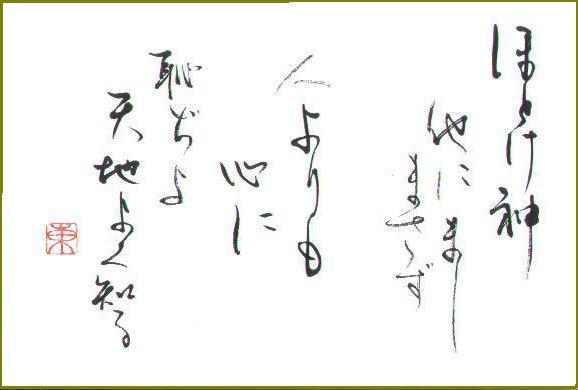 ほとけ神
他にまし
まさず
人よりも
心に
恥ぢよ
天地よく知る
東